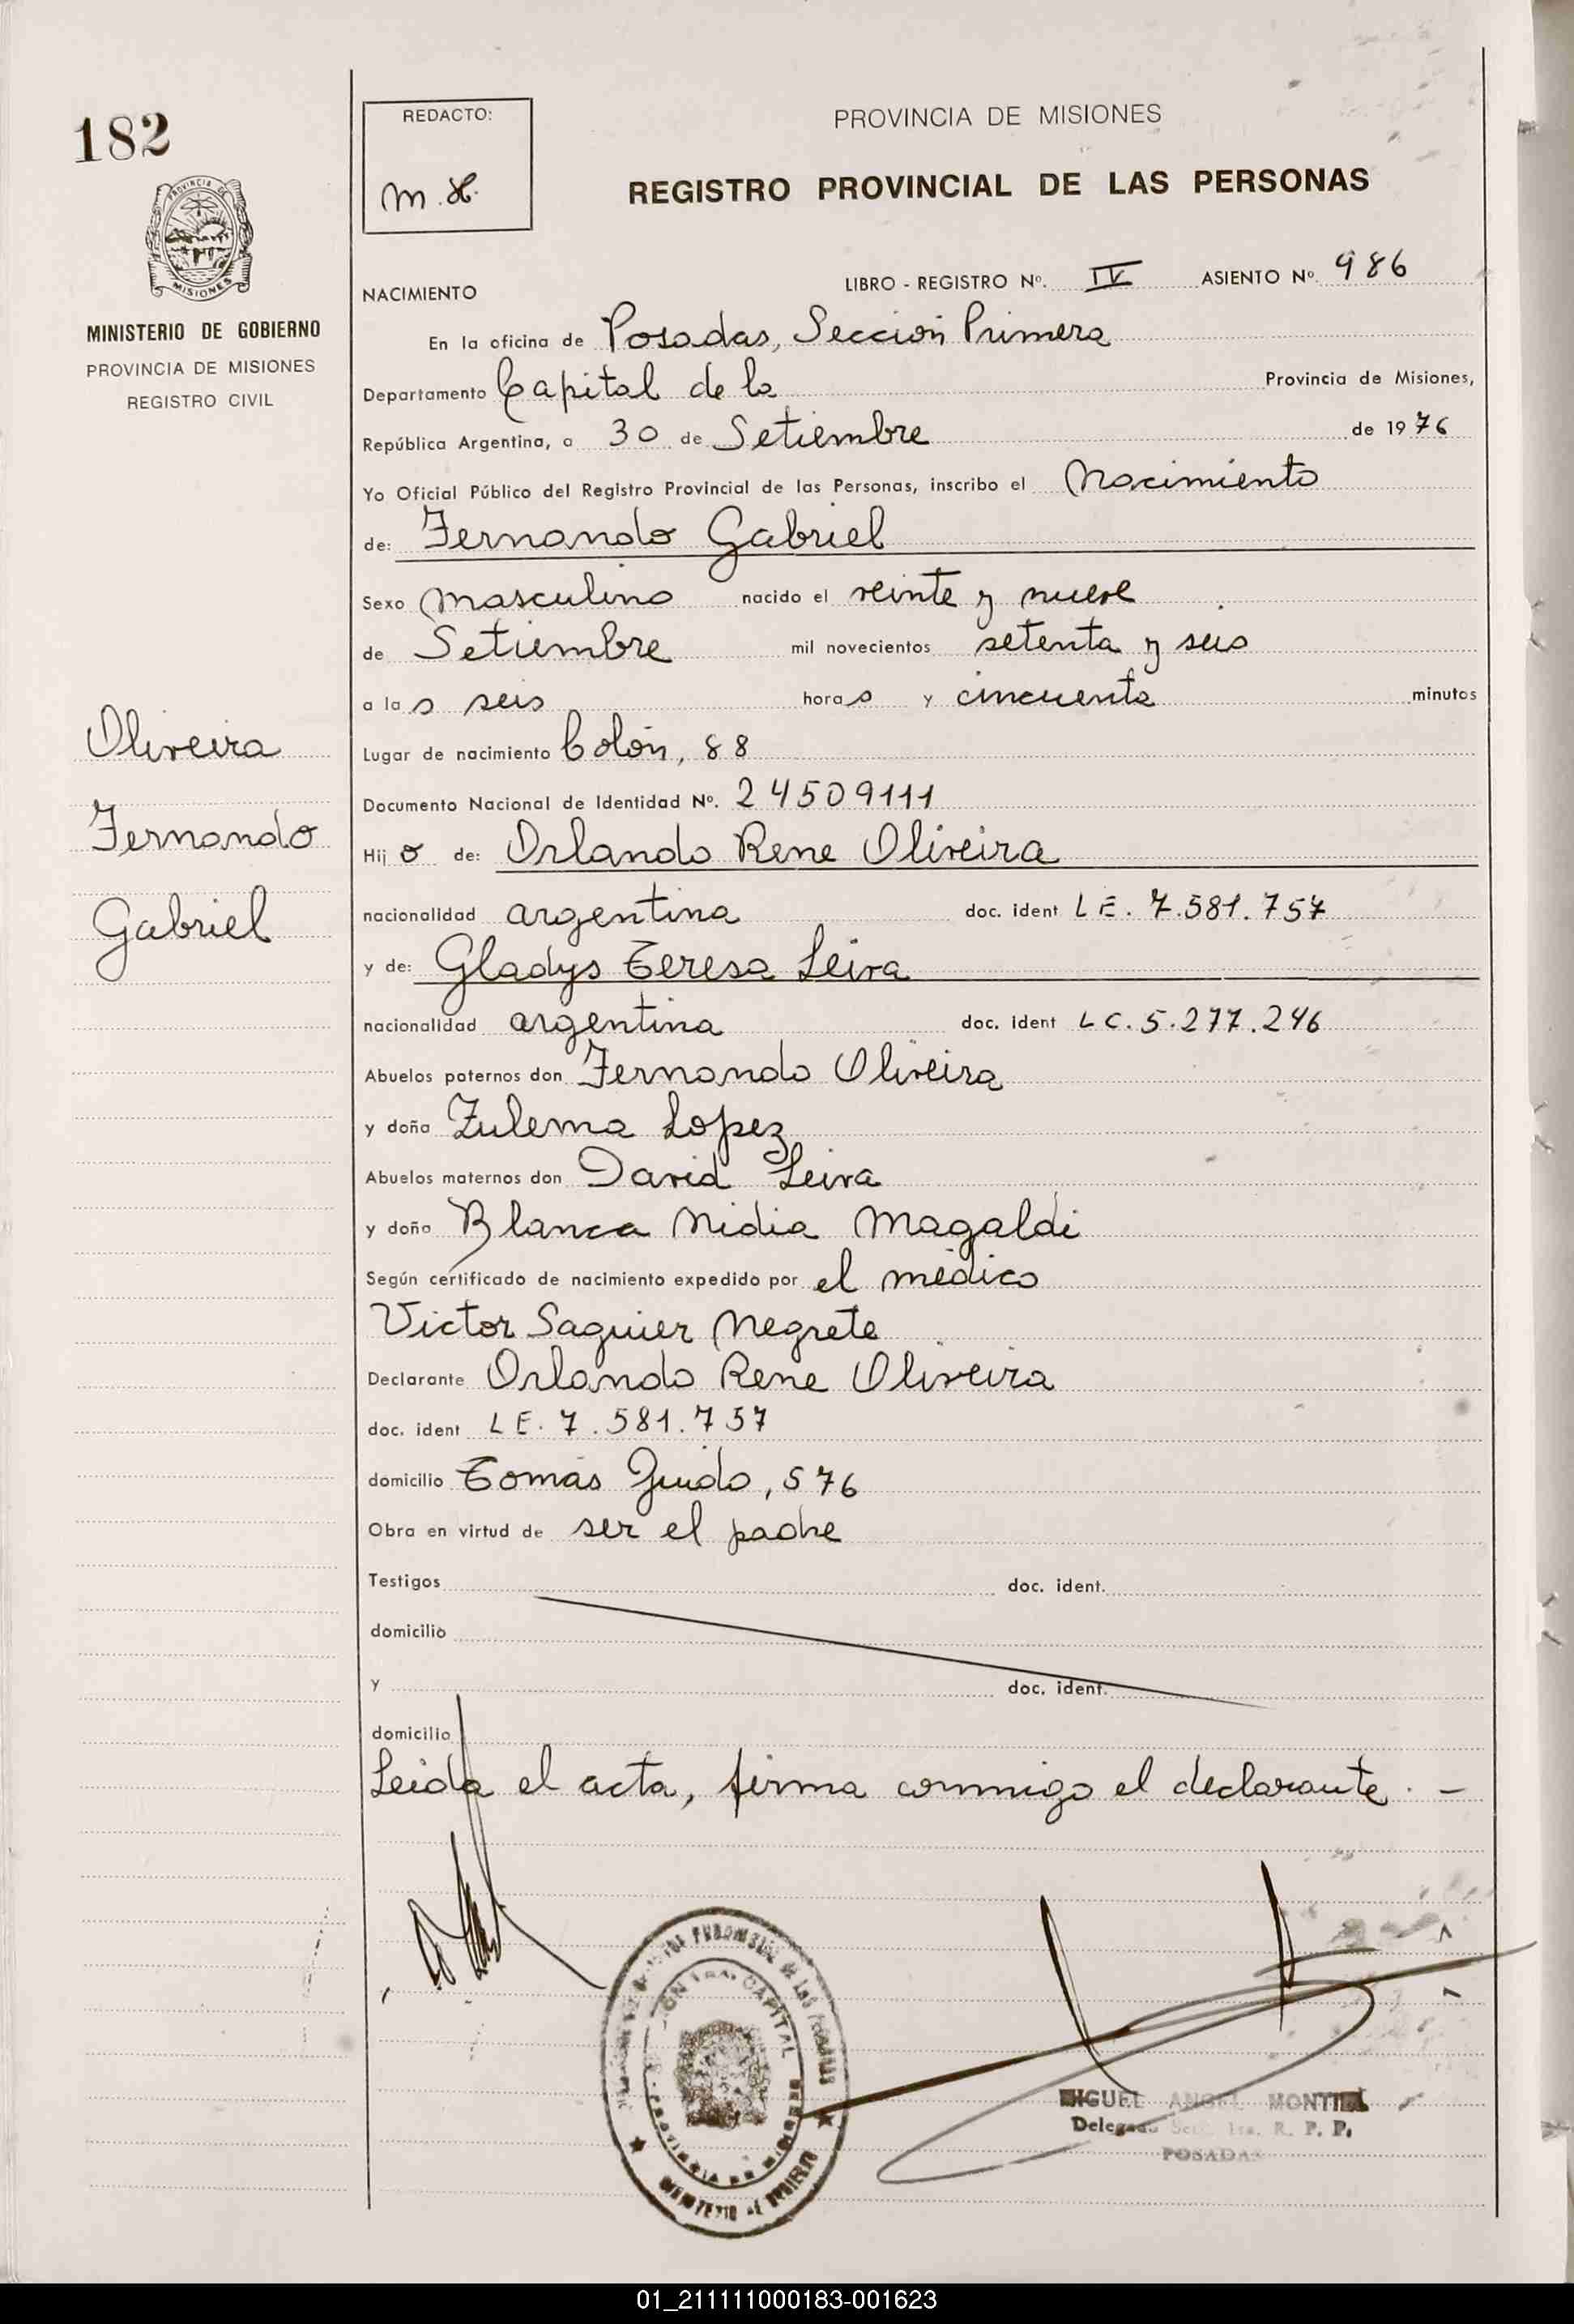 182
REDACTO:
M. H.
PROVINCIA DE MISIONES
REGISTRO PROVINCIAL DE LAS PERSONAS
PROVINCIA DE
MISIONES
MINISTERIO DE GOBIERNO
PROVINCIA DE MISIONES
REGISTRO CIVIL
NACIMIENTO
LIBRO - REGISTRO Nº. IV ASIENTO Nº. 986
En la oficina de Posadas, Sección Primera
Departamento Capital de la Provincia de Misiones,
República Argentina, a 30 de Setiembre de 1976
Yo Oficial Público del Registro Provincial de las Personas, inscribo el Nacimiento
de: Fernando Gabriel
Sexo masculino nacido el veinte y nueve
de Setiembre mil novecientos setenta y seis
a las seis horas y cincuenta minutos
Lugar de nacimiento Colón, 88
Documento Nacional de Identidad Nº. 24509111
Hijo de: Orlando Rene Oliveira
nacionalidad argentina doc. ident LE. 7.581.757
y de: Gladys Teresa Leiva
nacionalidad argentina doc. ident LC. 5.277.246
Abuelos paternos don Fernando Oliveira
y doña Zulema Lopez
Abuelos maternos don David Leiva
y doña Blanca Nidia Magaldi
Según certificado de nacimiento expedido por el médico
Victor Saguier Negrete
Declarante Orlando Rene Oliveira
doc. ident LE. 7.581.757
domicilio Tomás Guido, 576
Obra en virtud de ser el padre
Testigos doc. ident.
domicilio
y doc. ident.
domicilio
Leida el acta, firma conmigo el declarante. -
Oliveira
Fernando
Gabriel
CAPITAL
PROVINCIA DE MISIONES
MIGUEL ANGEL MONTIEL
Delegado Secc. 1ra. R. P. P.
POSADAS
01_211111000183-001623